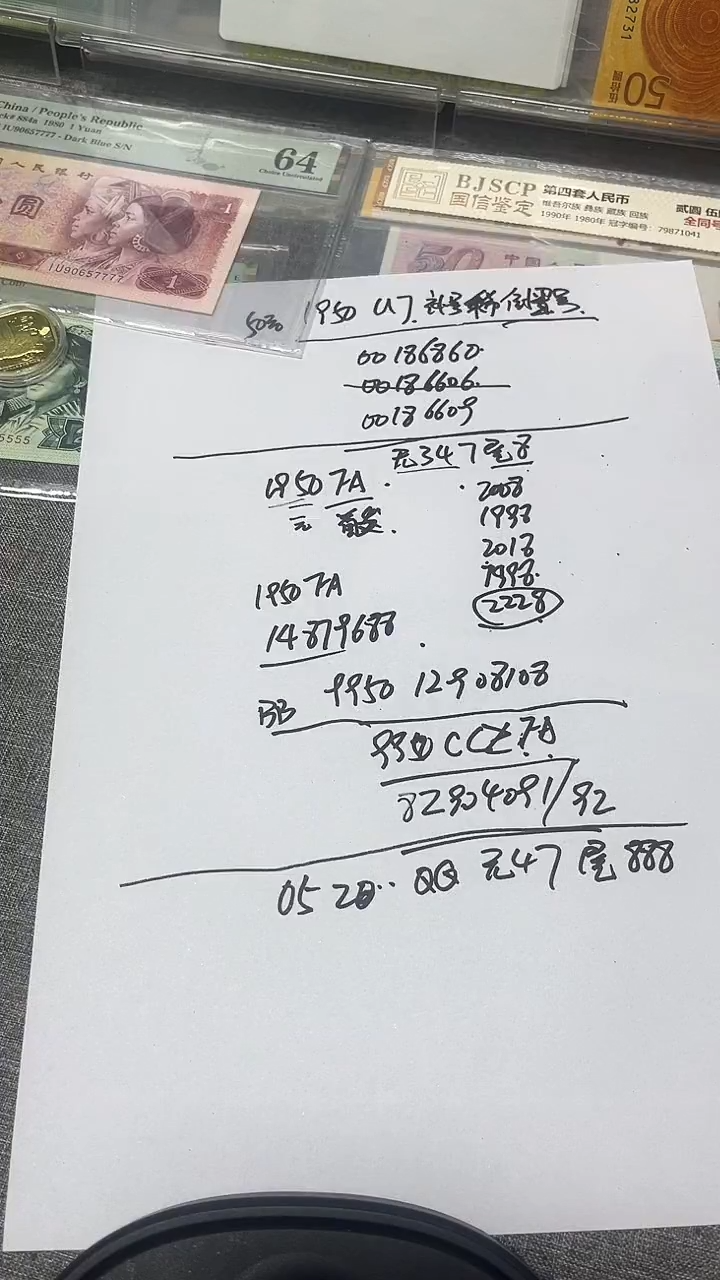 32731
50
China / People's Republic
1980 1 Yuan
IU90657777 - Dark Blue S/N
64
Choice Uncirculated
人民银行
圆
1
IU90657777
1
BJSCP
国信鉴定
第四套人民币
维吾尔族 彝族 藏族 回族
1990年 1980年 冠字编号: 79871041
贰圆 伍
全同号
50
中国人
5555
1950 U7
00186860
00186606
00186609
无347尾8
1950 7A
2008
1998
2018
1998
2228
1950 7A
14879688
BB 9950 12908108
9950 CCZ
82904091/92
0520 QQ 无47 尾888